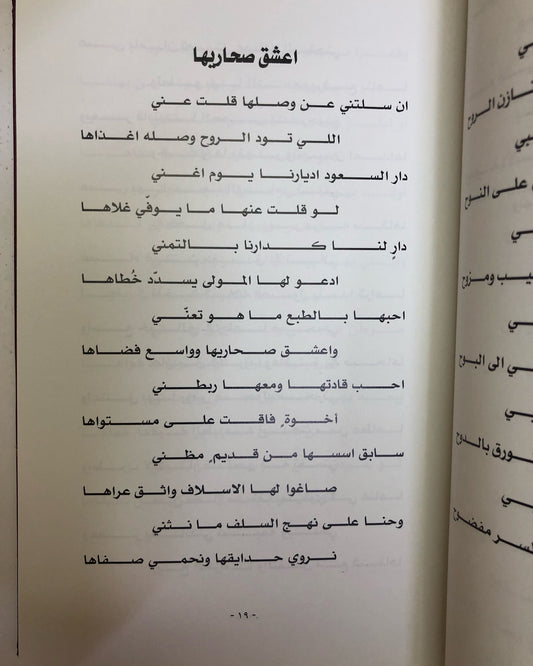 اعشق صحاريها
ان سلتني عن وصلها قلت عني
اللي تود الروح وصله اغذاها
دار السعود اديارنا يوم اغني
لو قلت عنها ما يوفّي غلاها
دارٍ لنا كدارنا بالتمني
ادعو لها المولى يسدّد خُطاها
احبها بالطبع ما هو تعنّي
واعشق صحاريها وواسع فضاها
احب قادتها ومعها ربطني
أخوةٍ فاقت على مستواها
سابق اسسها من قديمٍ مظني
صاغوا لها الاسلاف واثق عراها
وحنا على نهج السلف ما نثني
نروي حدايقها ونحمي صفاها
- ١٩ -
ي
تازن الروح
بي
على النوح
ي
يب ومزوح
ي
ي الى البوح
بي
ورق بالدوح
ي
لسر مفضوح